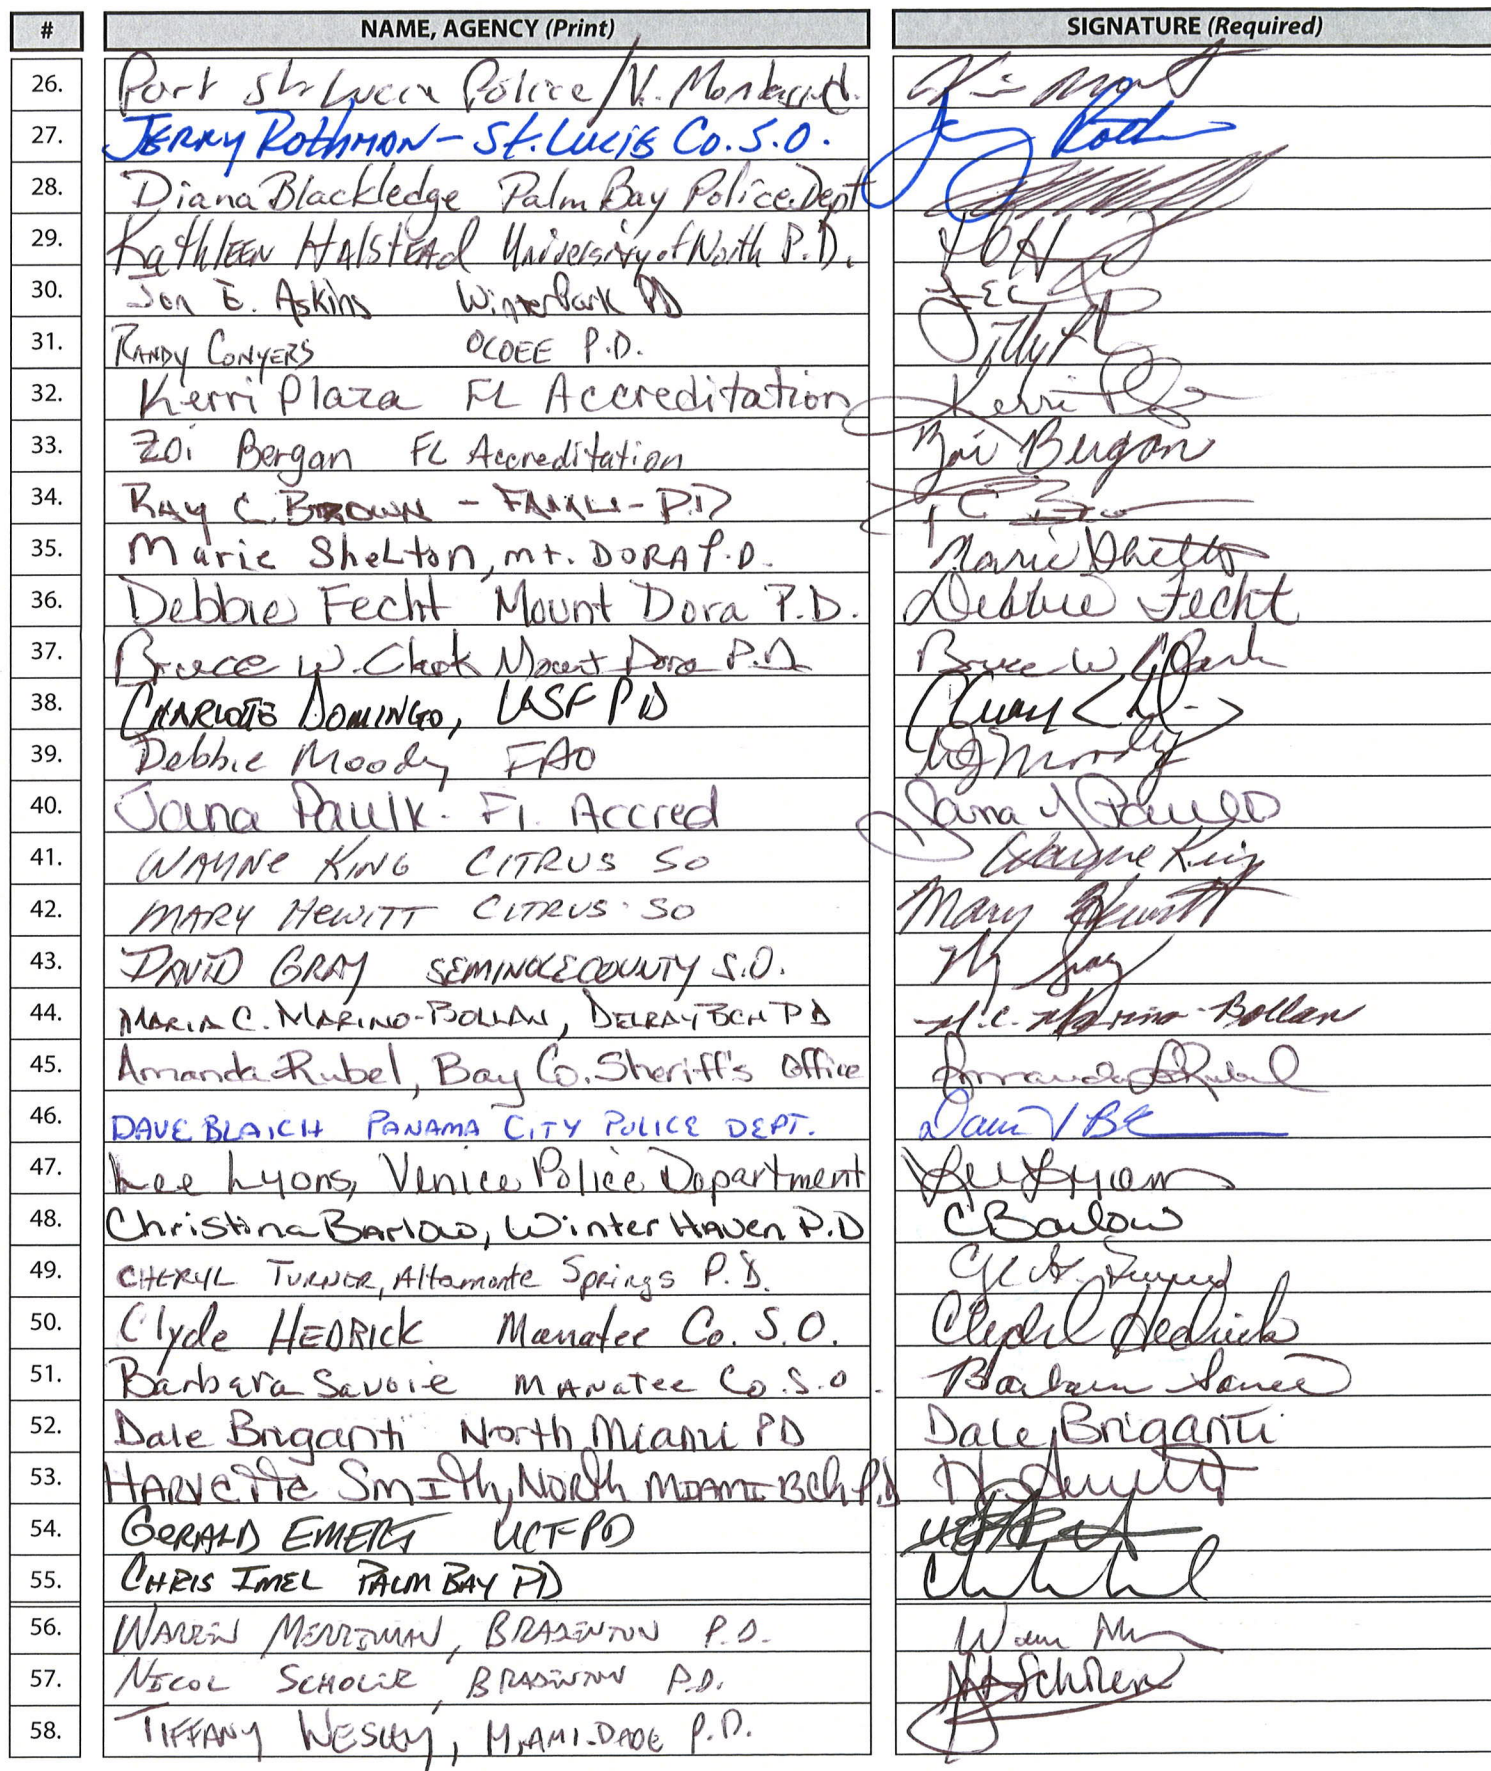 # NAME, AGENCY (Print) SIGNATURE (Required)
26. Port St Lucie Police/V.
27. JERRY ROTHMAN - St. LUCIE Co. S.O. Jerry Roth
28. Diana Blackledge Palm Bay Police Dept
29. KAthLEEN HAlStEAd University of North P.D.
30. Jon E. Askins Winter Park PD
31. RANDY CONYERS OCOEE P.D.
32. Kerri Plaza FL Accreditation Kerri
33. Zoi Bergan FL Accreditation Zoi Bergan
34. RAy C. BROWN - PD
35. Marie Shelton, mt. DORA P.D. Marie Shelton
36. Debbie Fecht Mount Dora P.D. Debbie Fecht
37. Bruce W. Clark Mount Dora P.D. Bruce W Clark
38. CHARLOTTE DOMINGO, USF PD
39. Debbie Moody FAO Moody
40. Jana Paulk - Fl. Accred Jana Paulk
41. WAYNE KING CITRUS SO Wayne King
42. MARY HEWITT CITRUS SO Mary Hewitt
43. DAVID GRAY SEMINOLE COUNTY S.O. Gray
44. MARIA C. MARINO-BOLLAN, DELRAY BCH PD M.C. Marino-Bollan
45. Amanda Rubel, Bay Co. Sheriff's Office Amanda Rubel
46. DAVE BLAICH PANAMA CITY POLICE DEPT.
47. Lee Lyons, Venice Police Department Lee Lyons
48. Christina Barlow, Winter Haven P.D C Barlow
49. CHERYL TURNER, Altamonte Springs P.D.
50. Clyde HEDRICK Manatee Co. S.O. Clyde Hedrick
51. Barbara Savoie MANATEE Co. S.O. Barbara Savoie
52. Dale Briganti North Miami PD Dale Briganti
53. HARVEttE SmIth, NORth MIAMI BCh P.D
54. GERALD EMERT UCFPD
55. CHRIS IMEL PALM BAY PD
56. WARREN MERRIMAN, BRADENTON P.D.
57. NICOL SCHOLER, BRADENTON P.D.
58. TIFFANY WESLEY, MIAMI-DADE P.D.